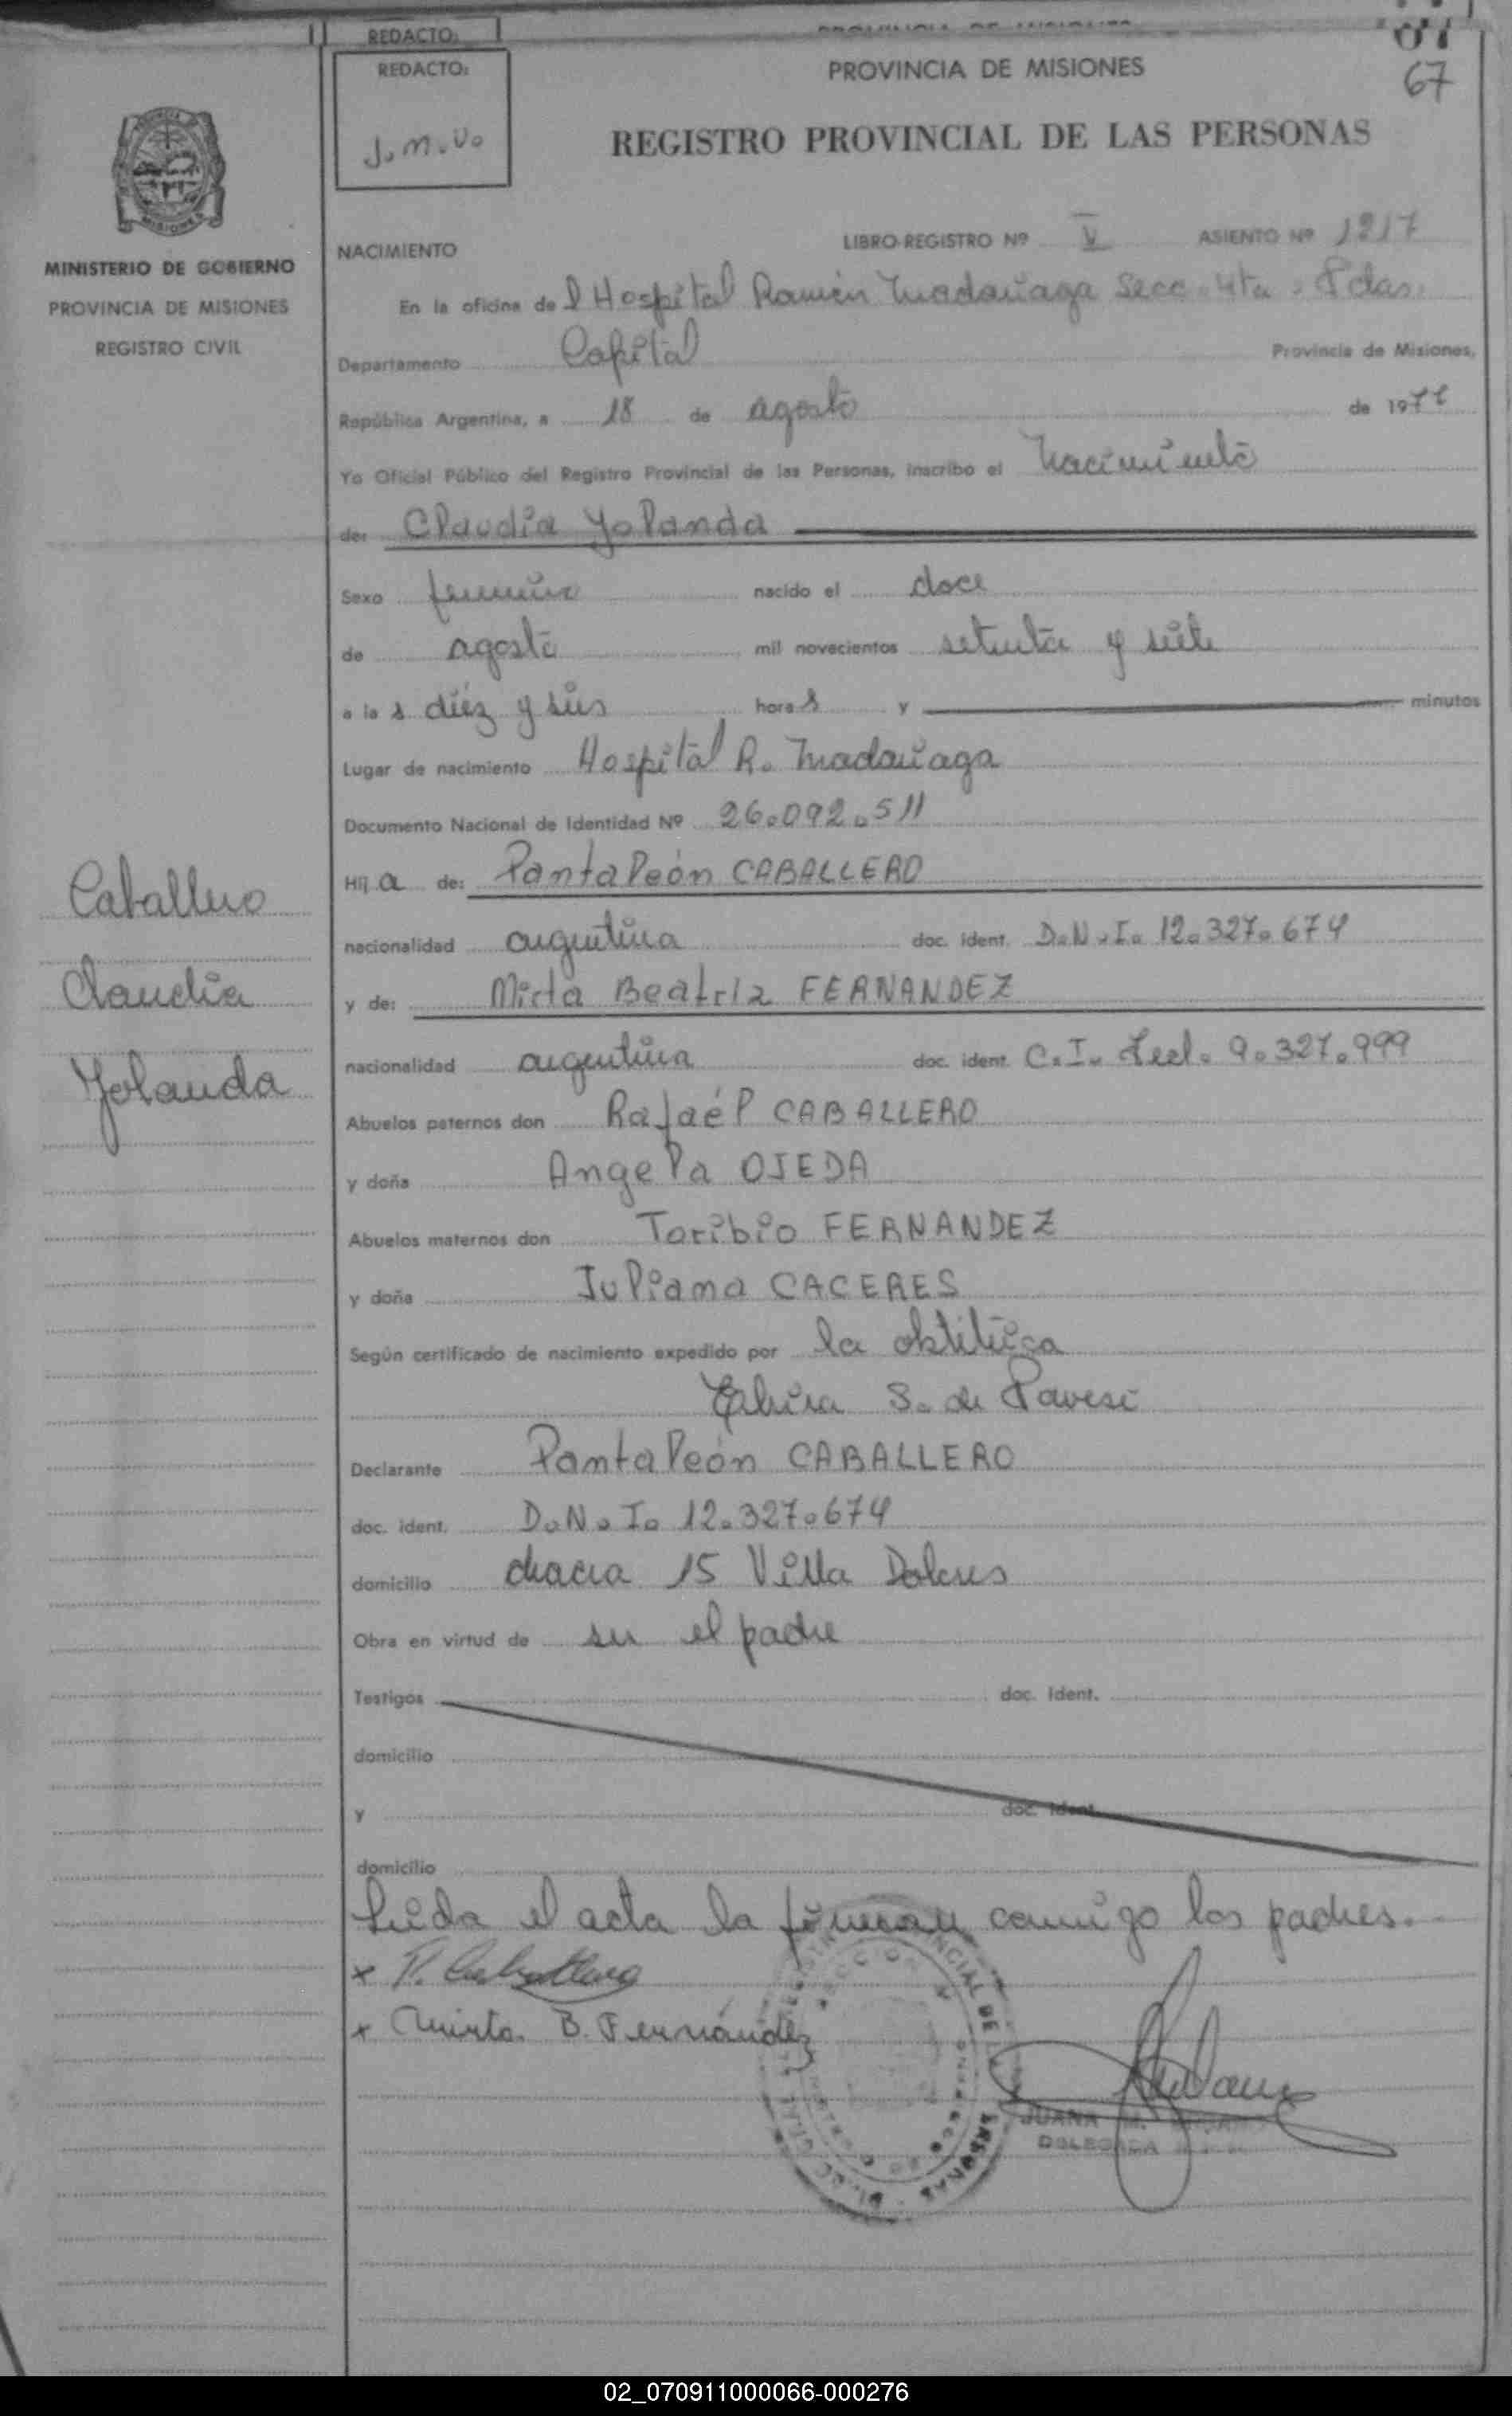 REDACTO:
REDACTO:
J.M.V.
PROVINCIA DE MISIONES
67
REGISTRO PROVINCIAL DE LAS PERSONAS
MINISTERIO DE GOBIERNO
PROVINCIA DE MISIONES
REGISTRO CIVIL
NACIMIENTO
LIBRO-REGISTRO Nº V ASIENTO Nº 1217
En la oficina del Hospital Ramón Madariaga Secc. 4ta. Pdas.
Departamento Capital Provincia de Misiones,
República Argentina, a 18 de agosto de 1977
Yo Oficial Público del Registro Provincial de las Personas, inscribo el Nacimiento
de: Claudia Yolanda
Sexo femenino nacido el doce
de agosto mil novecientos setenta y siete
a las diez y seis horas y minutos
Lugar de nacimiento Hospital R. Madariaga
Documento Nacional de Identidad Nº 26.092.511
Hija de: Pantaleón CABALLERO
nacionalidad argentina doc. ident. D.N.I. 12.327.674
y de: Mirta Beatriz FERNANDEZ
nacionalidad argentina doc. ident. C.I. 9.327.999
Abuelos paternos don Rafaél CABALLERO
y doña Angela OJEDA
Abuelos maternos don Toribio FERNANDEZ
y doña Juliana CACERES
Según certificado de nacimiento expedido por la obstétrica
S. de Pavesi
Declarante Pantaleón CABALLERO
doc. ident. D.N.I. 12.327.674
domicilio chacra 15 Villa Dolores
Obra en virtud de ser el padre
Testigos doc. Ident.
domicilio
y doc. Ident.
domicilio
Leída el acta la firman conmigo los padres.
x P. Caballero
x Mirta B. Fernández
JUANA M.
DELEGADA
Caballero
Claudia
Yolanda
02_070911000066-000276